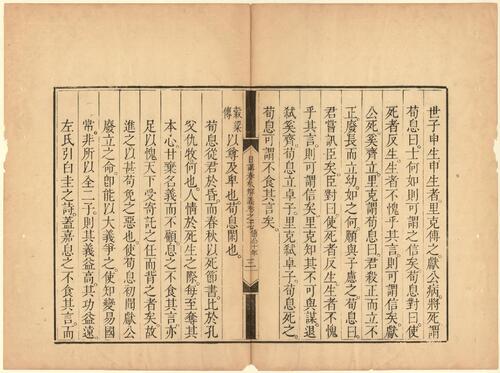 世子申生申生者里克傅之獻公病將死謂
荀息曰士何如則可謂之信矣荀息對曰使
死者反生生者不愧乎其言則可謂信矣獻
公死奚齊立里克謂荀息曰君殺正而立不
正廢長而立幼如之何願與子慮之荀息曰
君嘗訊臣矣臣對曰使死者反生生者不愧
乎其言則可謂信矣里克知其不可與謀退
弒奚齊荀息立卓子里克弒卓子荀息死之
荀息可謂不食其言矣
日講春秋解義卷之 十年 三
穀梁傳 以尊及卑也荀息閑也
荀息從君於昏而春秋以死節書比於孔
父仇牧何也人情於死生之際每至奪其
本心甘棄名義而不顧息之不食其言亦
足以愧天下受寄託之任而背之者矣故
進之以甚苟免之惡也使荀息初聞獻公
廢立之命卽能以大義爭之使知變易國
常非所以全二子則其義益高其功益遠
左氏引白圭之詩蓋嘉息之不食其言而